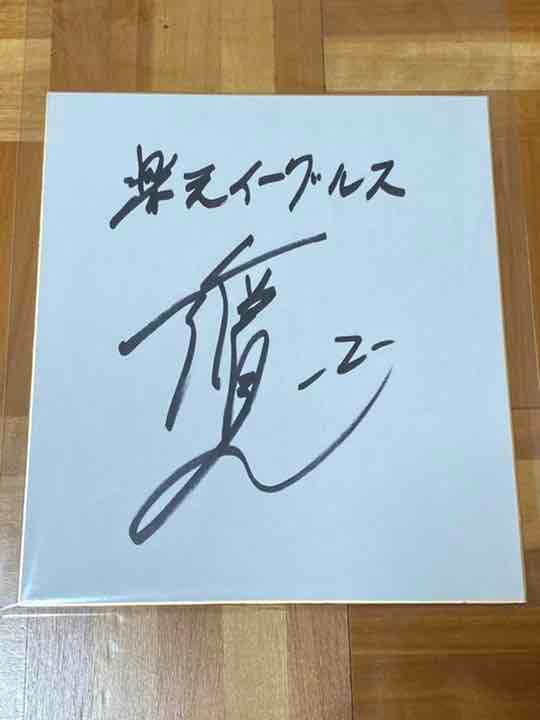 楽天イーグルス
-2-